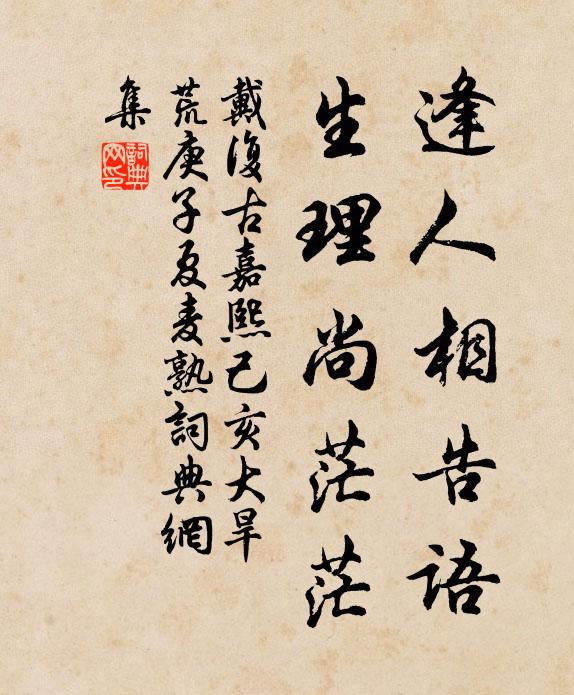 逢人相告语
生理尚茫茫
戴復古嘉熙己亥大旱
荒庚子夏麦熟詞典網
集
詞典网印